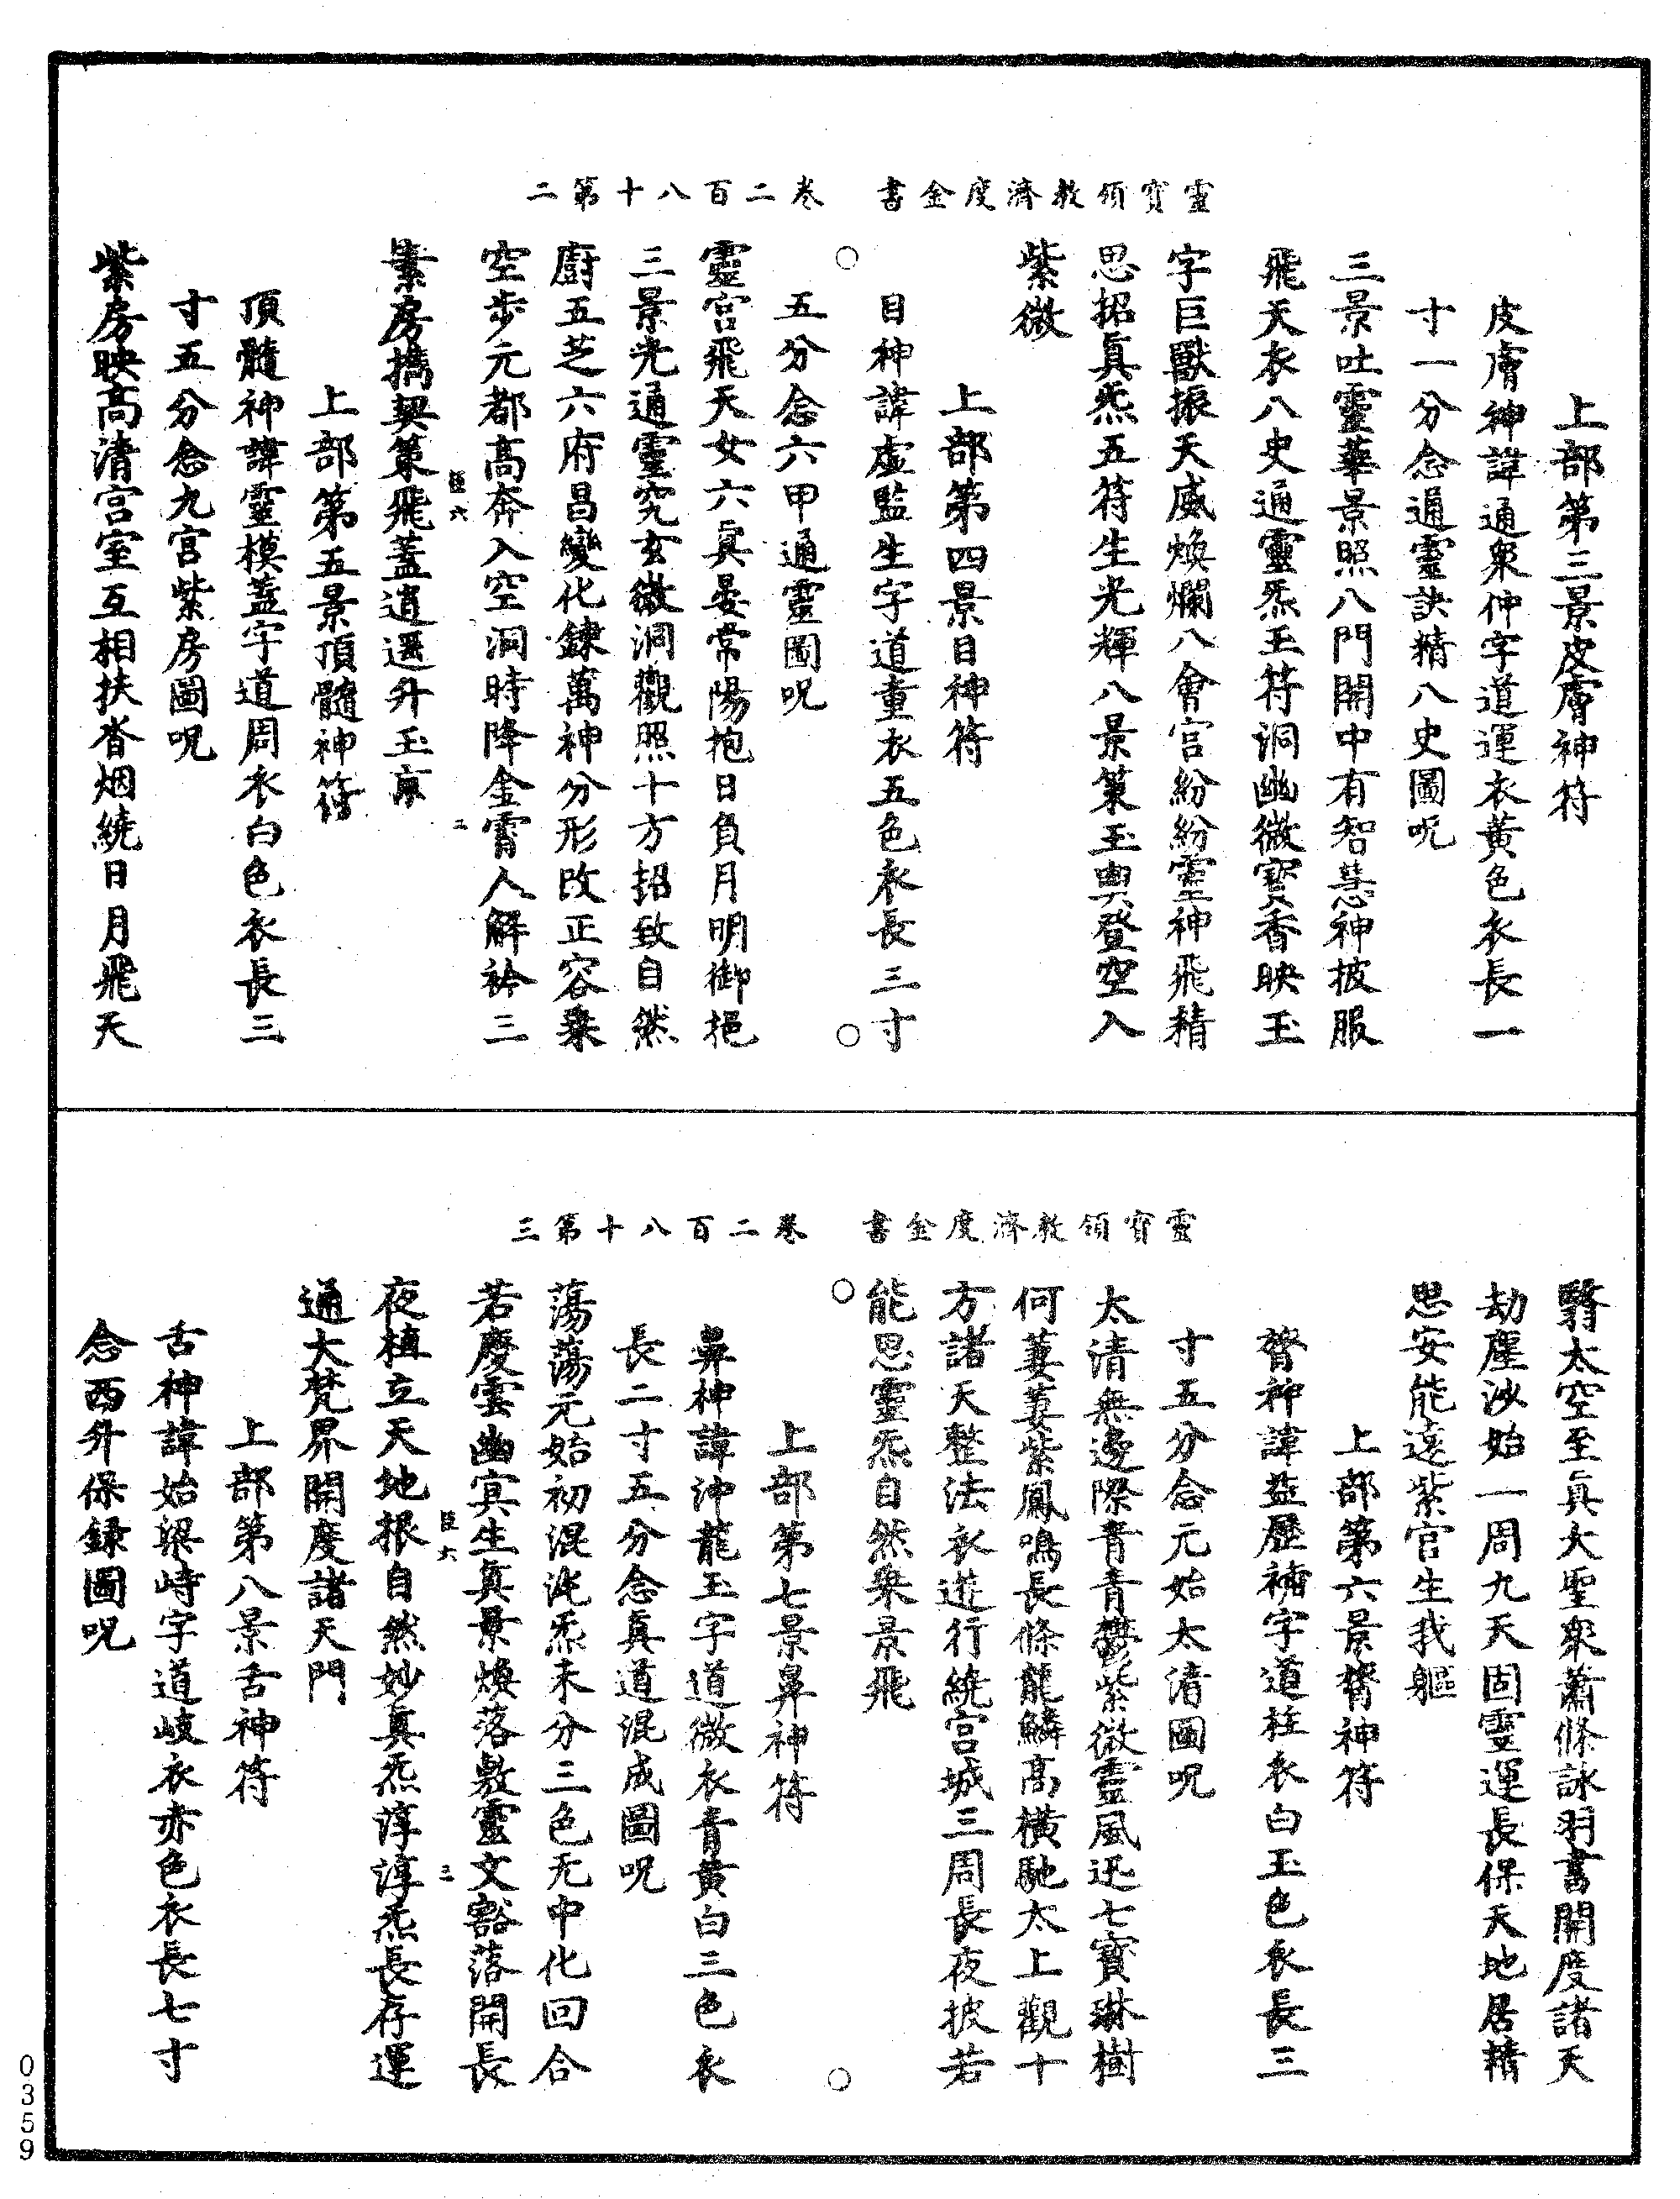 靈寶領教濟度金書　卷二百八十第二
上部第三景皮膚神符
皮膚神諱通衆仲字道運衣黃色衣長一
寸一分念通靈訣精八史圖呪
三景吐靈華景照八門開中有智慧神披服
飛天衣八史通靈炁玉符洞幽微寳香映玉
字巨獸振天威煥爛八會宮紛紛靈神飛精
思招眞炁五符生光輝八景策玉輿登空入
紫微
上部第四景目神符
目神諱虛監生字道童衣五色衣長三寸
五分念六甲通靈圖呪
靈宮飛天女六眞晏常陽抱日負月明御挹
三景光通靈究玄微洞觀照十方招致自然
廚五芝六府昌變化鍊萬神分形改正容乗
空步元都高奔入空洞時降金霄人解衿三
素房攜契策飛蓋逍遥升玉京
臣六　二
上部第五景頂髓神符
頂髓神諱靈模蓋字道周衣白色衣長三
寸五分念九宮紫房圖呪
紫房映高清宮室互相扶沓烟繞日月飛天
翳太空至眞大聖衆蕭條詠羽書開度諸天
劫塵沙始一周九天固靈運長保天地居精
思安能遠紫官生我軀
上部第六景膂神符
膂神諱益歷補字道柱衣白玉色衣長三
寸五分念元始太清圖呪
太清無邊際青青鬱紫微靈風迅七寳琳樹
何萋萋紫鳳鳴長條龍鱗高橫馳太上觀十
方諸天整法衣遊行繞宮城三周長夜披若
能思靈炁自然乗景飛
靈寶領教濟度金書　卷二百八十第三
上部第七景鼻神符
鼻神諱沖龍玉字道微衣青黃白三色衣
長二寸五分念眞道混成圖呪
蕩蕩元始初混沌炁未分三色无中化回合
若慶雲幽冥生眞景煥落敷靈文豁落開長
臣六　三
夜植立天地根自然妙眞炁淳淳炁長存運
通大梵昇開度諸天門
上部第八景舌神符
舌神諱始梁峙字道岐衣赤色衣長七寸
念西升保録圖呪
0359